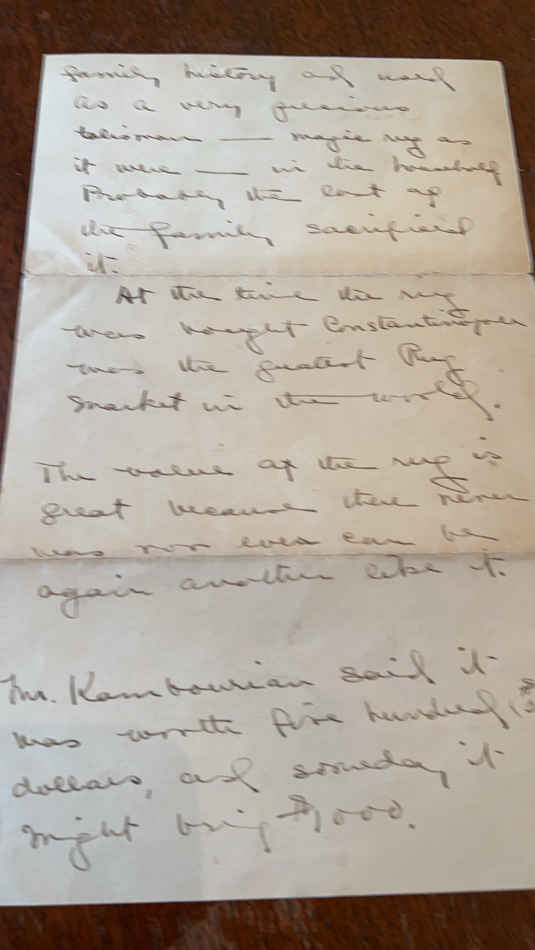 family history and used
as a very precious
talisman — magic rug as
it were — in the household
Probably the last of
the family sacrificed
it.
At the time the rug
was bought Constantinople
was the greatest Rug
market in the world.
The value of the rug is
great because there never
was nor ever can be
again another like it.
Mr. Kambourian said it
was worth five hundred ($
dollars, and someday it
might bring $1000.